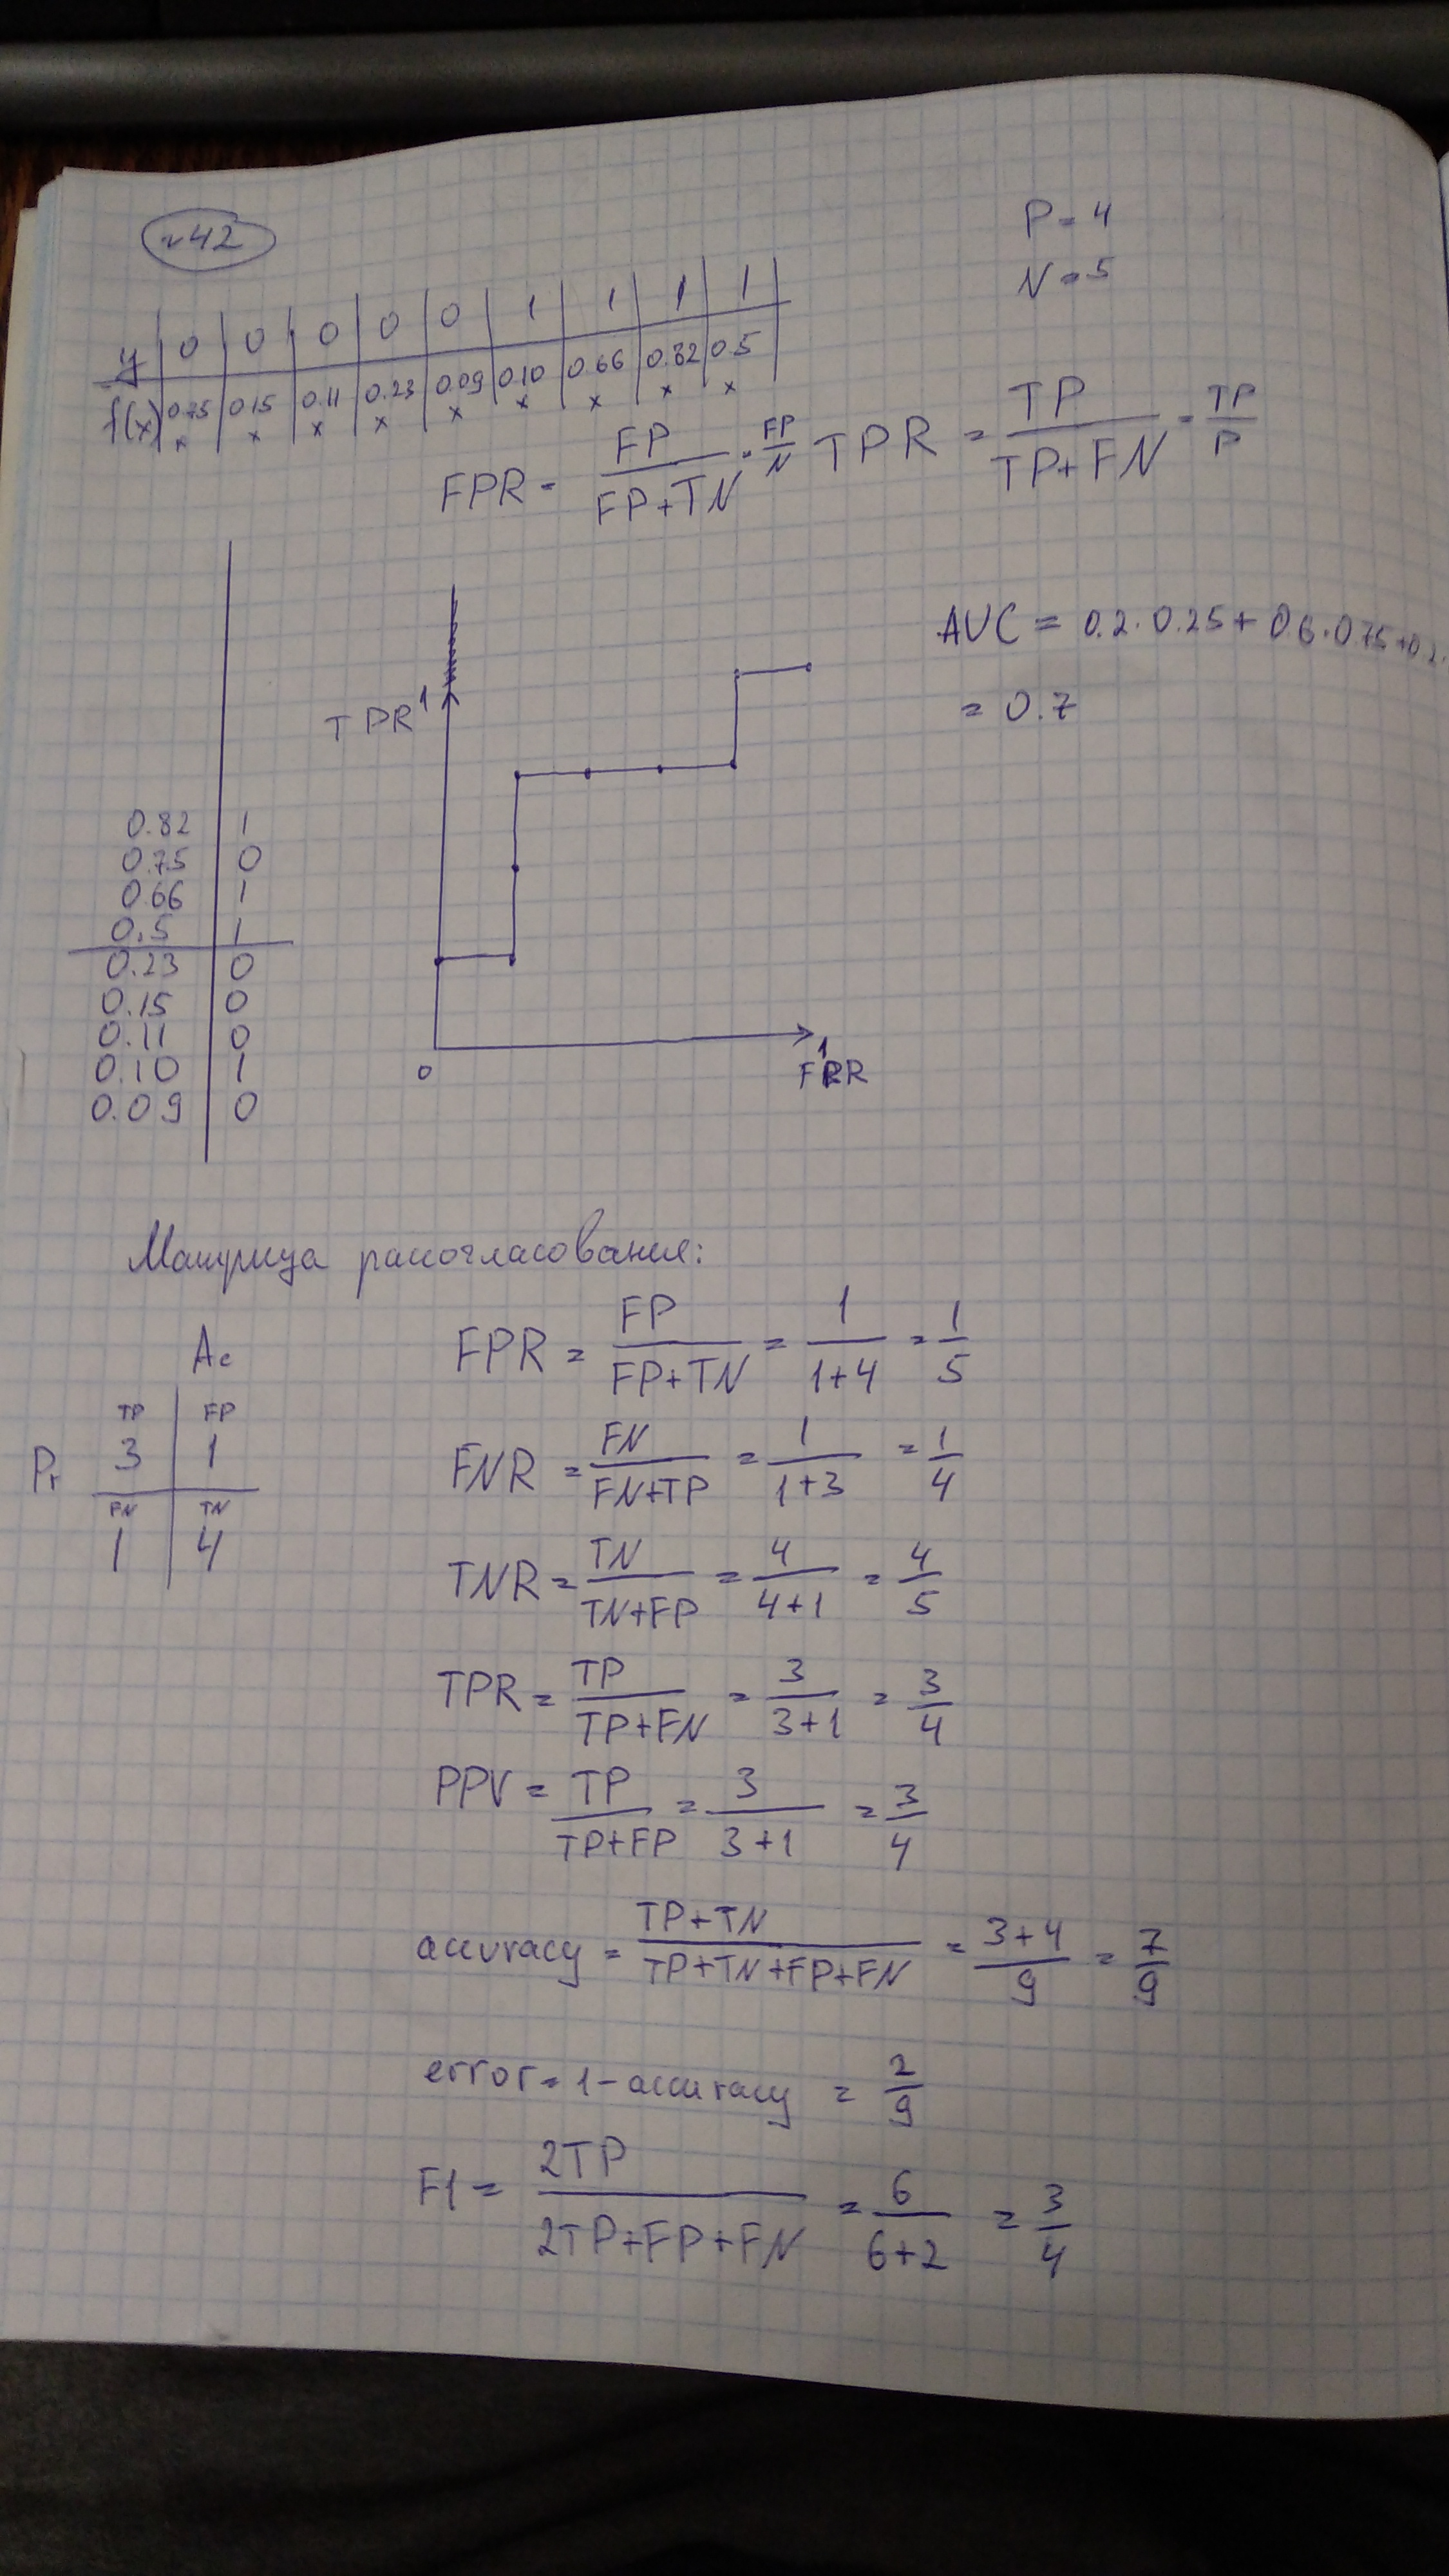 №42
P = 4
N = 5
y 0 0 0 0 0 1 1 1 1
f(x) 0.75 0.15 0.11 0.23 0.09 0.10 0.66 0.82 0.5
x x x x x x x x x
FPR = FP / FP+TN = FP / N TPR = TP / TP+FN = TP / P
AUC = 0.2·0.25 + 0.6·0.75 + 0.2·
= 0.7
TPR 1
0.82 1
0.75 0
0.66 1
0.5 1
0.23 0
0.15 0
0.11 0
0.10 1
0.09 0
0 1
FPR
Матрица рассогласования:
Ac
TP FP
Pr 3 1
FN TN
1 4
FPR = FP / FP+TN = 1 / 1+4 = 1 / 5
FNR = FN / FN+TP = 1 / 1+3 = 1 / 4
TNR = TN / TN+FP = 4 / 4+1 = 4 / 5
TPR = TP / TP+FN = 3 / 3+1 = 3 / 4
PPV = TP / TP+FP = 3 / 3+1 = 3 / 4
accuracy = TP+TN / TP+TN+FP+FN = 3+4 / 9 = 7 / 9
error = 1 - accuracy = 2 / 9
F1 = 2TP / 2TP+FP+FN = 6 / 6+2 = 3 / 4